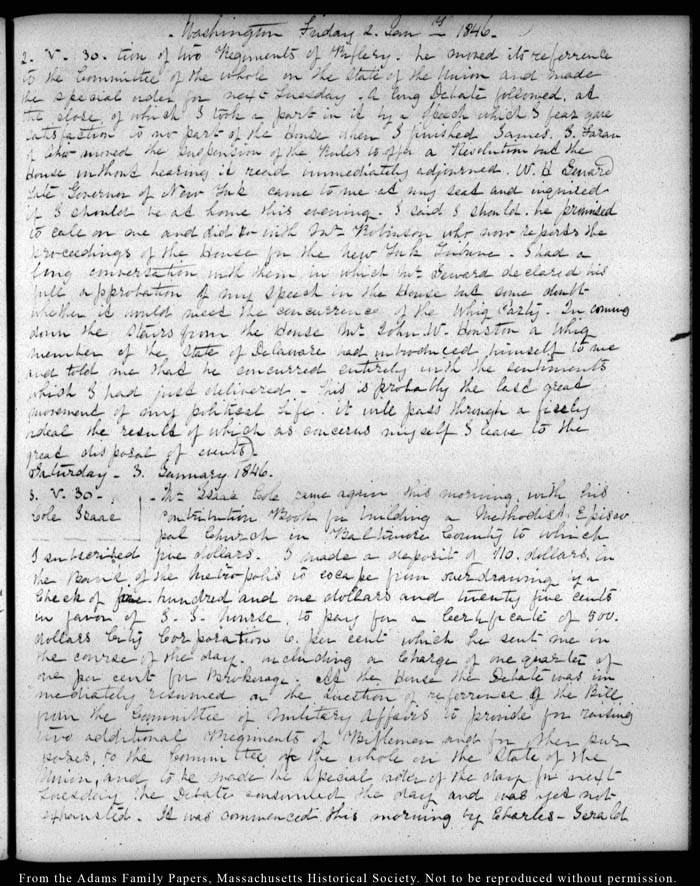 Washington Friday 2. Jan.ry 1846.
2. V. 30. tion of two Regiments of Riflery. he moved its referrence
to the Committee of the whole on the State of the Union and made
the special order for next Tuesday. A long Debate followed, at
the close, of which I took a part in it by a Speech which I fear gave
satisfaction to no part of the House when I finished James. J. Faran
of Ohio moved the suspension of the Rules to offer a Resolution but the
House without hearing it read immediately adjourned. W. H Seward
late Governor of New York came to me at my seat and inquired
if I should be at home this evening. I said I should. he promised
to call on me and did so with Mr Robinson who now reports the
proceedings of the House for the New York Tribune. I had a
long conversation with them in which Mr Seward declared his
full approbation of my speech in the House but some doubt
whether it would meet the concurrence of the Whig Party. In coming
down the Stairs from the House Mr John W. Houston a Whig
member of the State of Delaware had introduced himself to me
and told me that he concurred entirely with the sentiments
which I had just delivered. This is probably the last great
movement of my political Life. it will pass through a firely
ordeal the result of which as concerns myself I leave to the
great disposal of events.
Saturday - 3. January 1846.
3. V. 30. Mr Isaac Cole came again this morning, with his
Cole Isaac contribution Book for building a Methodist Episco
pal Church in Baltimore County to which
I subscribed five dollars. I made a deposit of 110. dollars, in
the Bank of the Metropolis to escape from overdrawing by a
Check of five hundred and one dollars and twenty five cents
in favor of S. S. Nourse, to pay for a Certificate of 500.
dollars City Corporation 6. per cent which he sent me in
the course of the day. including a Charge of one quarter of
one per cent for Brokerage. At the House the Debate was im
mediately resumed on the question of referrence of the Bill
from the Committee of Military Affairs to provide for raising
two additional Regiments of Riflemen and for other pur
poses, to the Committee of the whole on the State of the
Union, and to be made the special order of the day for next
Tuesday the Debate consumed the day and was yet not
exhausted. It was commenced this morning by Charles- Jerald
From the Adams Family Papers, Massachusetts Historical Society. Not to be reproduced without permission.